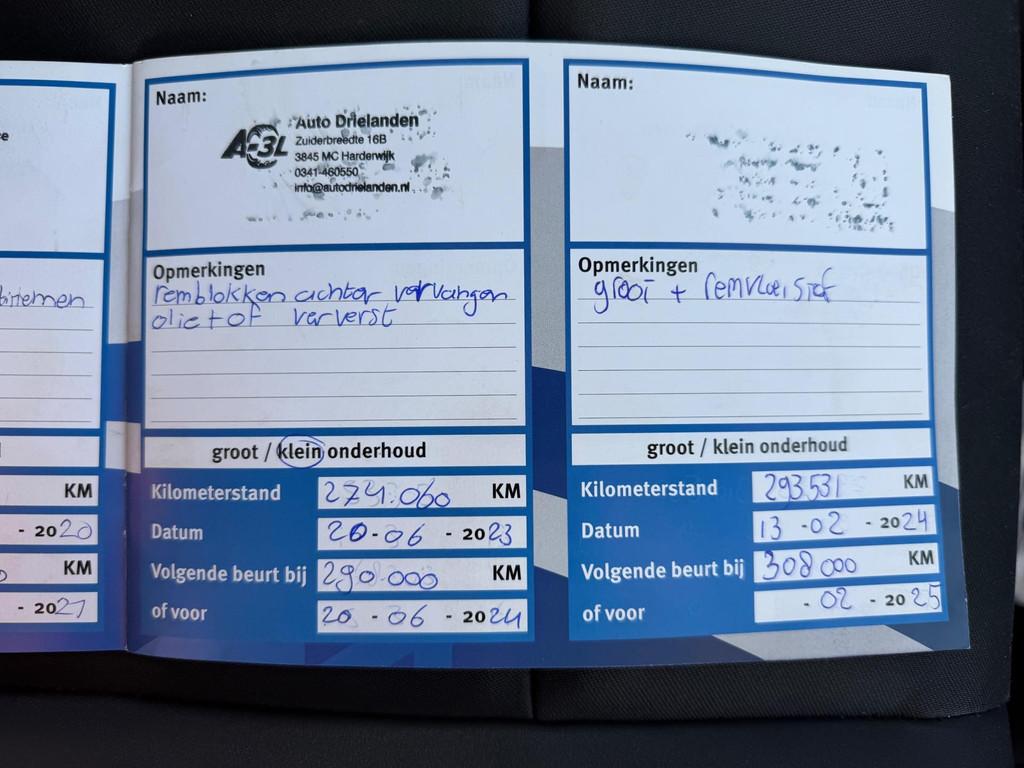 Naam:
A-3L
Auto Drielanden
Zuiderbreedte 16B
3845 MC Harderwijk
0341-460550
info@autodrielanden.nl
Opmerkingen
remblokken achter vervangen
olie + of ververst
groot / klein onderhoud
Kilometerstand 274.060 KM
Datum 20-06 - 2023
Volgende beurt bij 290.000 KM
of voor 20 - 06 - 2024
Naam:
Opmerkingen
groot + remvloeistof
groot / klein onderhoud
Kilometerstand 293.531 KM
Datum 13 - 02 - 2024
Volgende beurt bij 308000 KM
of voor - 02 - 2025
KM
- 2020
KM
- 2021